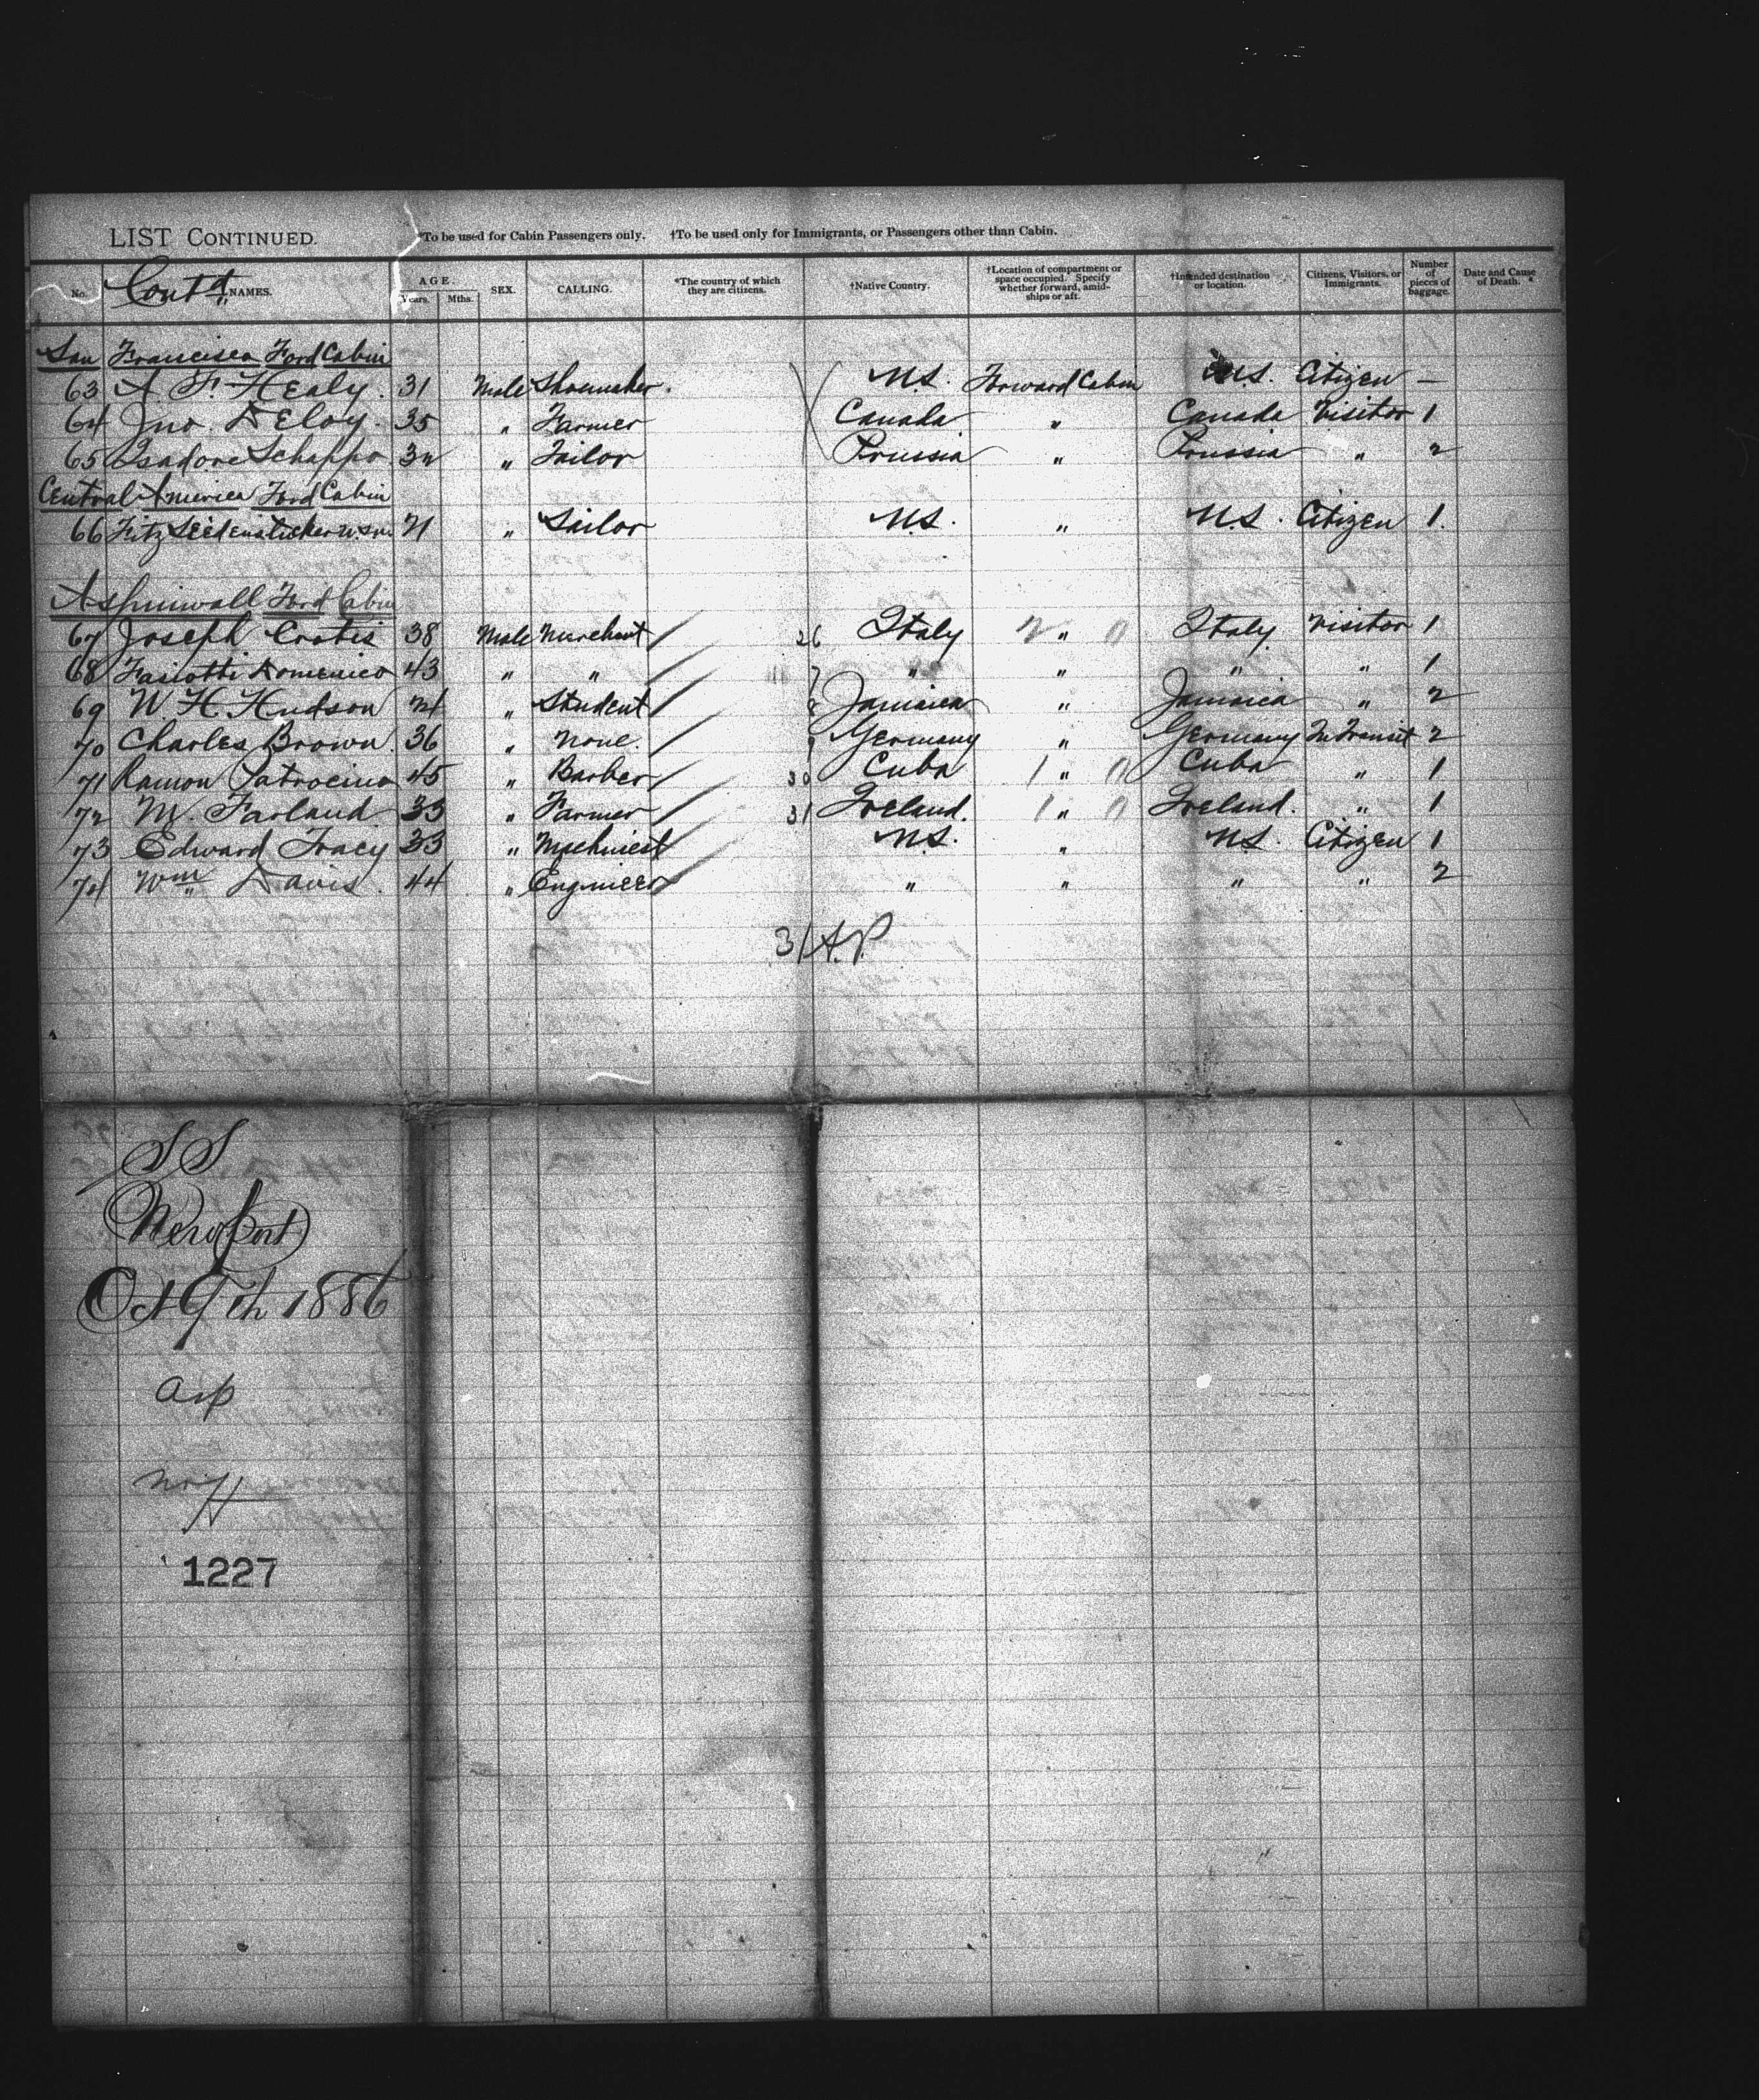 LIST CONTINUED. *To be used for Cabin Passengers only. †To be used only for Immigrants, or Passengers other than Cabin.
No. Contd NAMES. AGE Years. Mths. SEX. CALLING. *The country of which they are citizens. †Native Country. †Location of compartment or space occupied. Specify whether forward, amidships or aft. †Intended destination or location. Citizens, Visitors, or Immigrants. Number of pieces of baggage. Date and Cause of Death.
San Francisco Ford Cabin
63 A. F. Healy. 31 Male Shoemaker. U.S. Forward Cabin U.S. Citizen —
64 Jno. DeLoy. 35 " Farmer Canada " Canada Visitor 1
65 Isadore Schappo " Tailor Prussia " Prussia " 2
Central America Ford Cabin
66 Fitz Seidensticker " Sailor U.S. " U.S. Citizen 1.
Aspinwall Ford Cabin
67 Joseph Crotis 38 Male Merchant 26 Italy 2 " Italy Visitor 1
68 Fasiotti Domenico 43 " " 7 " " " " 1
69 W. H. Hudson 21 " Student 8 Jamaica " Jamaica " 2
70 Charles Brown. 36 " None. 9 Germany " Germany In Transit 2
71 Ramon Patrocino 45 " Barber 30 Cuba 1 " Cuba " 1
72 M. Farland 33 " Farmer 31 Ireland. 1 " Ireland. " 1
73 Edward Tracy 33 " Machinest U.S. " U.S. Citizen 1
74 Wm Davis. 44 " Engineer " " " " 2
31 A.P.
SS
Newport
Oct 9th 1886
Asp
1227